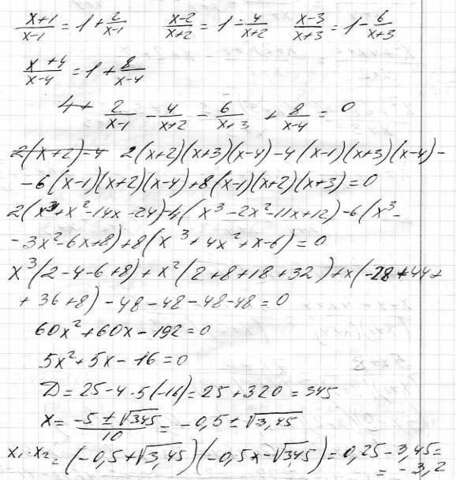 x+1/x-1 = 1+2/x-1   x-2/x+2 = 1-4/x+2   x-3/x+3 = 1-6/x+3
x+4/x-4 = 1+8/x-4
4+ 2/x-1 - 4/x+2 - 6/x+3 + 8/x-4 = 0
2(x+2)-4 2(x+2)(x+3)(x-4)-4(x-1)(x+3)(x-4)-
-6(x-1)(x+2)(x-4)+8(x-1)(x+2)(x+3)=0
2(x³+x²-14x-24)-4(x³-2x²-11x+12)-6(x³-
-3x²-6x+8)+8(x³+4x²+x-6)=0
x³(2-4-6+8)+x²(2+8+18+32)+x(-28+44+
+36+8)-48-48-48-48=0
60x²+60x-192=0
5x²+5x-16=0
D=25-4·5(-16)=25+320=345
x= -5±√345/10 = -0,5±√3,45
x₁·x₂=(-0,5+√3,45)(-0,5-√3,45)=0,25-3,45=
=-3,2